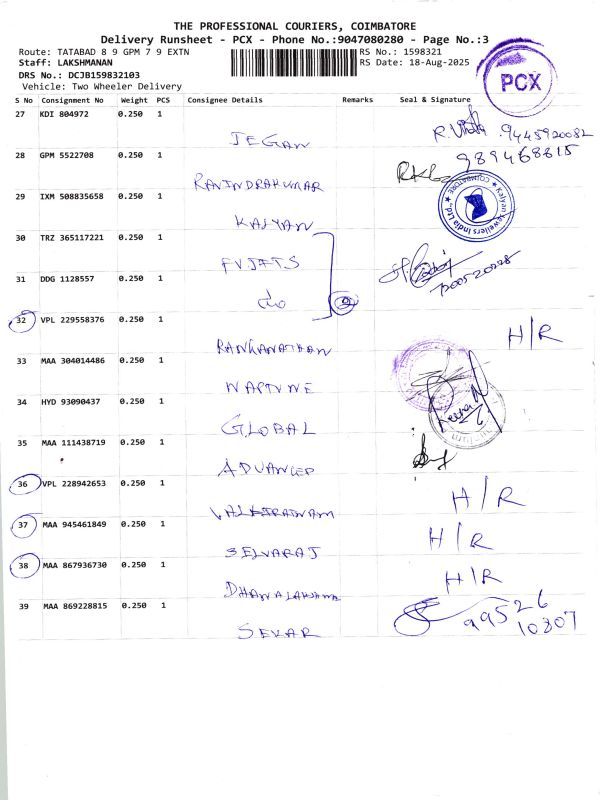 THE PROFESSIONAL COURIERS, COIMBATORE
Delivery Runsheet - PCX - Phone No.:9047080280 - Page No.:3
Route: TATABAD 8 9 GPM 7 9 EXTN RS No.: 1598321
Staff: LAKSHMANAN RS Date: 18-Aug-2025
DRS No.: DCJB159832103
Vehicle: Two Wheeler Delivery
PCX
S No Consignment No Weight PCS Consignee Details Remarks Seal & Signature
27 KDI 804972 0.250 1
JEGAN 9445920082
28 GPM 5522708 0.250 1 989468815
RAVINDRAKUMAR
29 IXM 508835658 0.250 1
Kalyan Jewellers India Ltd COIMBATORE
KALYAN
30 TRZ 365117221 0.250 1
31 DDG 1128557 0.250 1
32 VPL 229558376 0.250 1 H/R
RANGANATHAN
33 MAA 304014486 0.250 1
NAPTUNE
34 HYD 93090437 0.250 1
GLOBAL
35 MAA 111438719 0.250 1
ADVANCED
36 VPL 228942653 0.250 1 H/R
37 MAA 945461849 0.250 1 H/R
SELVARAJ
38 MAA 867936730 0.250 1 H/R
39 MAA 869228815 0.250 1 99526
10807
SEKAR